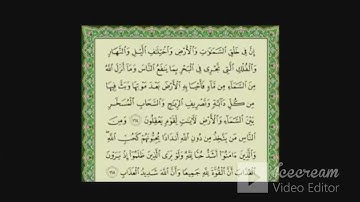 إِنَّ فِي خَلْقِ السَّمَٰوَٰتِ وَالْأَرْضِ وَاخْتِلَٰفِ الَّيْلِ وَالنَّهَارِ
وَالْفُلْكِ الَّتِي تَجْرِي فِي الْبَحْرِ بِمَا يَنفَعُ النَّاسَ وَمَا أَنزَلَ اللَّهُ
مِنَ السَّمَاءِ مِن مَّاءٍ فَأَحْيَا بِهِ الْأَرْضَ بَعْدَ مَوْتِهَا وَبَثَّ فِيهَا
مِن كُلِّ دَابَّةٍ وَتَصْرِيفِ الرِّيَٰحِ وَالسَّحَابِ الْمُسَخَّرِ
بَيْنَ السَّمَاءِ وَالْأَرْضِ لَءَايَٰتٍ لِّقَوْمٍ يَعْقِلُونَ ١٦٤ وَمِنَ
النَّاسِ مَن يَتَّخِذُ مِن دُونِ اللَّهِ أَندَادًا يُحِبُّونَهُمْ كَحُبِّ اللَّهِ
وَالَّذِينَ ءَامَنُوا أَشَدُّ حُبًّا لِّلَّهِ وَلَوْ يَرَى الَّذِينَ ظَلَمُوا إِذْ يَرَوْنَ
الْعَذَابَ أَنَّ الْقُوَّةَ لِلَّهِ جَمِيعًا وَأَنَّ اللَّهَ شَدِيدُ الْعَذَابِ ١٦٥
Icecream
Video Editor